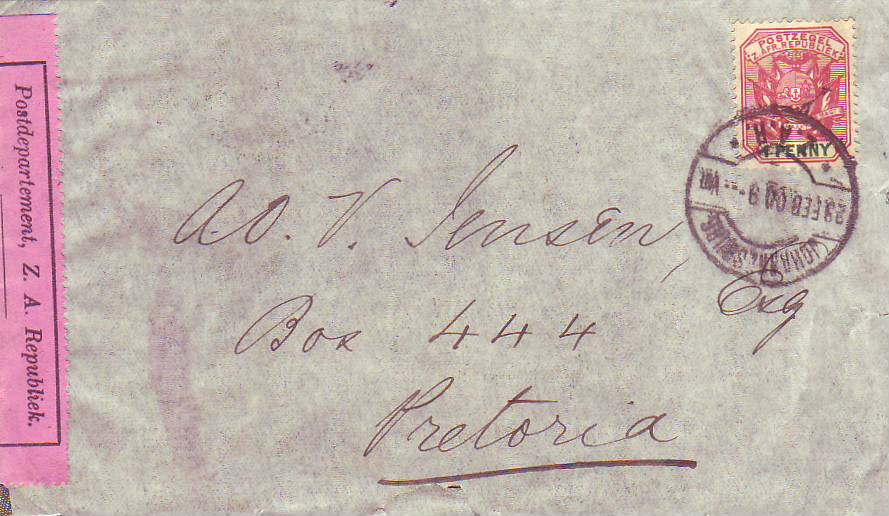 Postdepartement, Z. A. Republiek.
POSTZEGEL
Z. AFR. REPUBLIEK
1 PENNY
JOHANNESBURG
FEB 00
Z.A.R.
V. Jensen,
Esq
Box 444
Pretoria